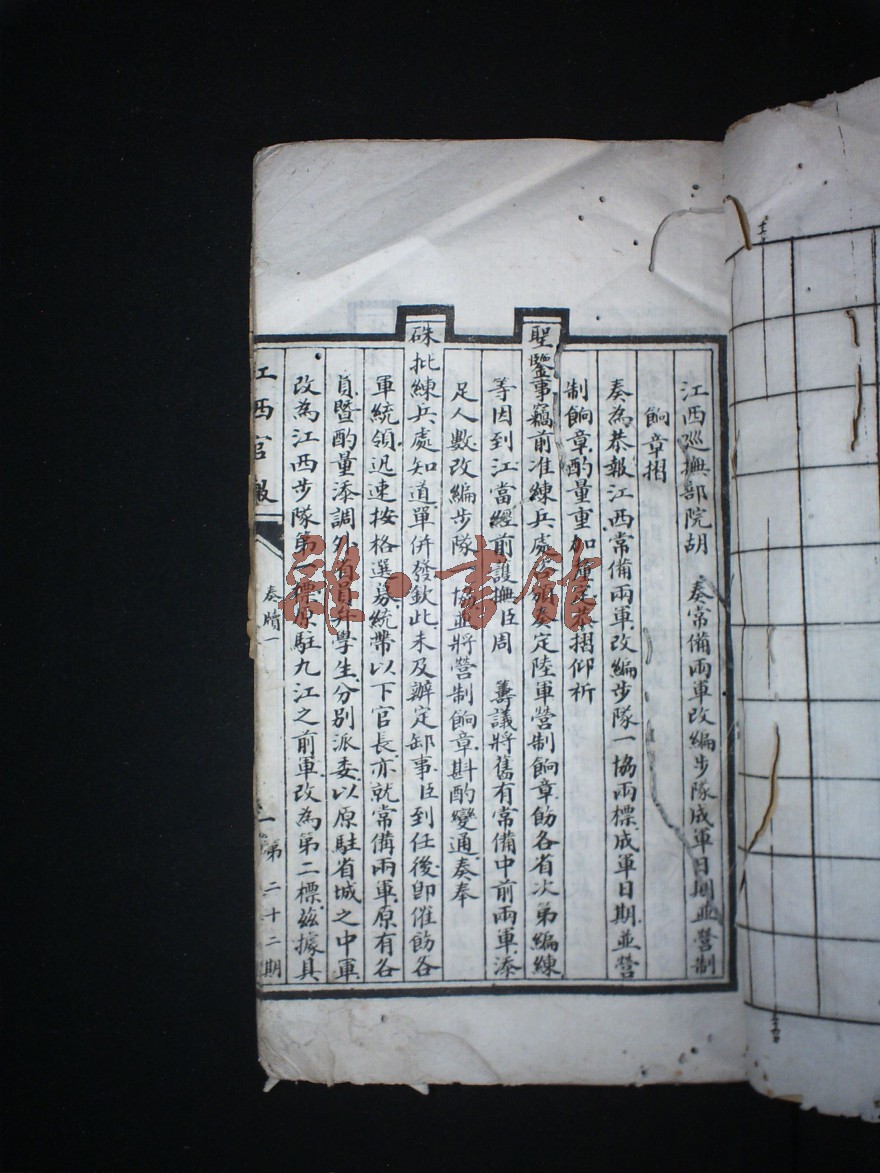 江西巡撫部院胡　奏常備兩軍改編步隊成軍日期並營制
餉章摺
奏為恭報江西常備兩軍改編步隊一協兩標成軍日期並營
制餉章酌量重加釐定恭摺仰祈
聖鑒事竊前准練兵處咨奏定陸軍營制餉章飭各省次第編練
等因到江當經前護撫臣周　籌議將舊有常備中前兩軍添
足人數改編步隊一協並將營制餉章斟酌變通奏奉
硃批練兵處知道單併發欽此未及辦定卸事臣到任後卽催飭各
軍統領迅速按格選募統帶以下官長亦就常備兩軍原有各
員暨酌量添調外省員弁學生分別派委以原駐省城之中軍
改為江西步隊第一標原駐九江之前軍改為第二標茲據具
江西官報
奏牘一
一
第二十二期
雜·書館